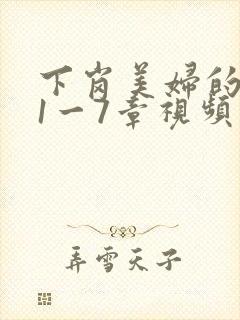 下岗美婦的
1一7章視頻
弄雪天子